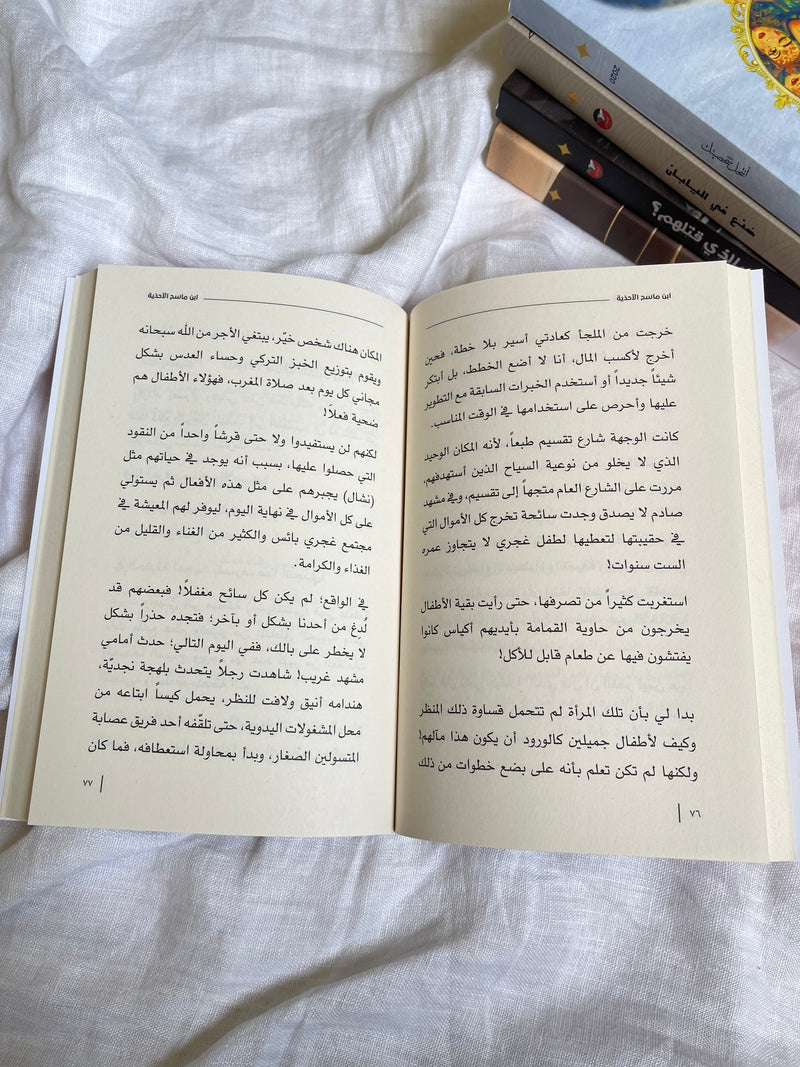 ابن ماسح الأحذية
خرجت من الملجأ كعادتي أسير بلا خطة، فحين
أخرج لأكسب المال، أنا لا أضع الخطط، بل أبتكر
شيئاً جديداً أو أستخدم الخبرات السابقة مع التطوير
عليها وأحرص على استخدامها في الوقت المناسب.
كانت الوجهة شارع تقسيم طبعاً، لأنه المكان الوحيد
الذي لا يخلو من نوعية السياح الذين أستهدفهم،
مررت على الشارع العام متجهاً إلى تقسيم، وفي مشهد
صادم لا يصدق وجدت سائحة تخرج كل الأموال التي
في حقيبتها لتعطيها لطفل غجري لا يتجاوز عمره
الست سنوات!
استغربت كثيراً من تصرفها، حتى رأيت بقية الأطفال
يخرجون من حاوية القمامة بأيديهم أكياس كانوا
يفتشون فيها عن طعام قابل للأكل!
بدا لي بأن تلك المرأة لم تتحمل قساوة ذلك المنظر
وكيف لأطفال جميلين كالورود أن يكون هذا مآلهم!
ولكنها لم تكن تعلم بأنه على بضع خطوات من ذلك
٧٦
ابن ماسح الأحذية
المكان هناك شخص خيّر، يبتغي الأجر من الله سبحانه
ويقوم بتوزيع الخبز التركي وحساء العدس بشكل
مجاني كل يوم بعد صلاة المغرب، فهؤلاء الأطفال هم
ضحية فعلاً!
لكنهم لن يستفيدوا ولا حتى قرشاً واحداً من النقود
التي حصلوا عليها، بسبب أنه يوجد في حياتهم مثل
(نشال) يجبرهم على مثل هذه الأفعال ثم يستولي
على كل الأموال في نهاية اليوم، ليوفر لهم المعيشة في
مجتمع غجري بائس والكثير من الغناء والقليل من
الغذاء والكرامة.
في الواقع؛ لم يكن كل سائح مغفلاً! فبعضهم قد
لُدِغ من أحدنا بشكل أو بآخر؛ فتجده حذراً بشكل
لا يخطر على بالك، ففي اليوم التالي؛ حدث أمامي
مشهد غريب! شاهدت رجلاً يتحدث بلهجة نجديّة،
هندامه أنيق ولافت للنظر، يحمل كيساً ابتاعه من
محل المشغولات اليدوية، حتى تلقّفه أحد فريق عصابة
المتسولين الصغار، وبدأ بمحاولة استعطافه، فما كان
٧٧
2020
خنع في اليابان
الذي قتلهم؟